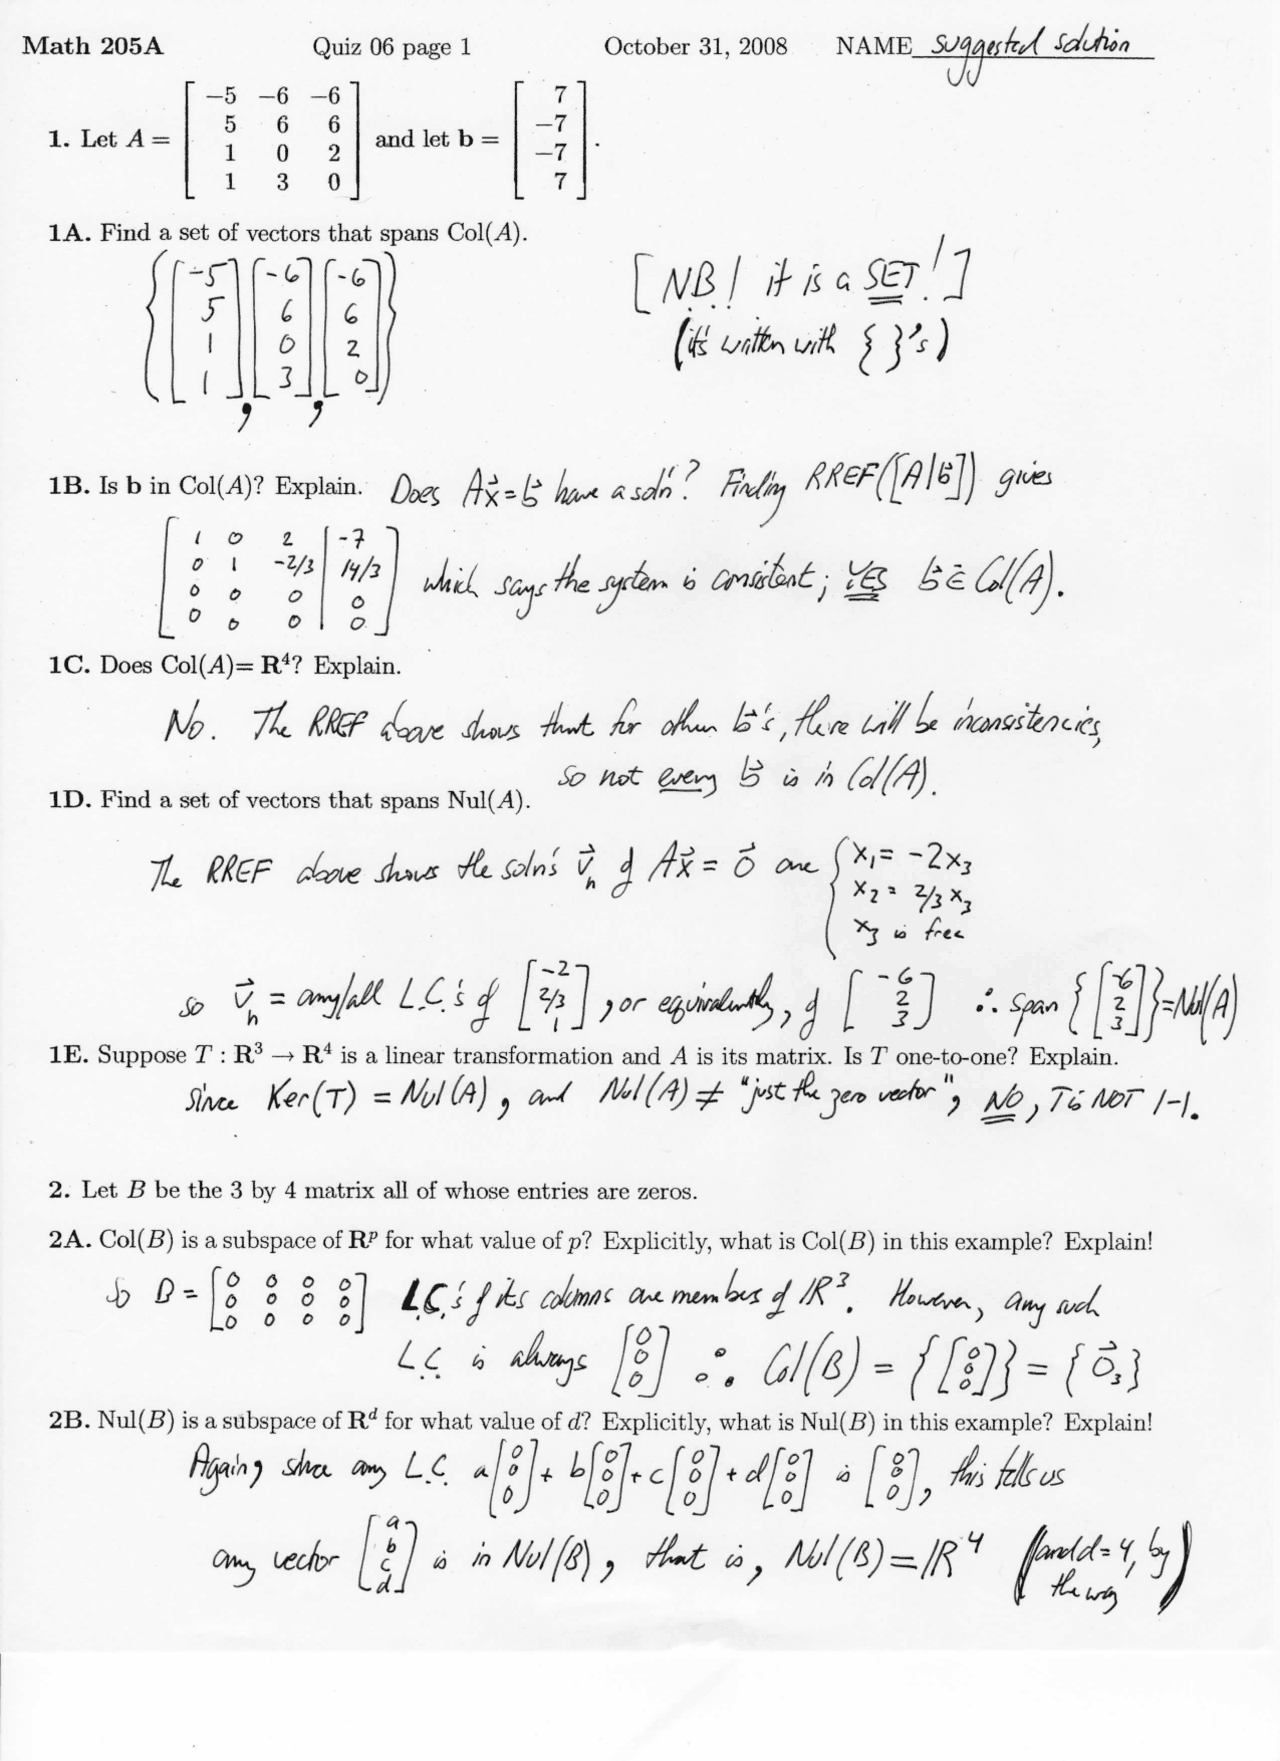 Math 205A Quiz 06 page 1 October 31, 2008 NAME suggested solution
1. Let A = [ −5 −6 −6 ; 5 6 6 ; 1 0 2 ; 1 3 0 ] and let b = [ 7 ; −7 ; −7 ; 7 ].
1A. Find a set of vectors that spans Col(A).
{ [ -5 ; 5 ; 1 ; 1 ] , [ -6 ; 6 ; 0 ; 3 ] , [ -6 ; 6 ; 2 ; 0 ] }
[NB! it is a SET!]
(it's written with { }'s)
1B. Is b in Col(A)? Explain. Does Ax⃗ = b⃗ have a sol'n? Finding RREF([A|b⃗]) gives
[ 1 0 2 | -7 ; 0 1 -2/3 | 14/3 ; 0 0 0 | 0 ; 0 0 0 | 0 ] which says the system is consistent; YES b⃗ ∈ Col(A).
1C. Does Col(A)= R⁴? Explain.
No. The RREF above shows that for other b⃗'s, there will be inconsistencies,
so not every b⃗ is in Col(A).
1D. Find a set of vectors that spans Nul(A).
The RREF above shows the soln's v⃗ₕ of Ax⃗ = 0⃗ are { x₁ = -2x₃
x₂ = 2/3 x₃
x₃ is free
so v⃗ₕ = any/all L.C.'s of [ -2 ; 2/3 ; 1 ], or equivalently, of [ -6 ; 2 ; 3 ] ∴ span { [ -6 ; 2 ; 3 ] } = Nul(A)
1E. Suppose T : R³ → R⁴ is a linear transformation and A is its matrix. Is T one-to-one? Explain.
Since Ker(T) = Nul(A), and Nul(A) ≠ "just the zero vector", NO, T is NOT 1-1.
2. Let B be the 3 by 4 matrix all of whose entries are zeros.
2A. Col(B) is a subspace of Rᵖ for what value of p? Explicitly, what is Col(B) in this example? Explain!
So B = [ 0 0 0 0 ; 0 0 0 0 ; 0 0 0 0 ] L.C.'s of its columns are members of ℝ³. However, any such
L.C. is always [ 0 ; 0 ; 0 ] ∴ Col(B) = { [ 0 ; 0 ; 0 ] } = { 0⃗₃ }
2B. Nul(B) is a subspace of Rᵈ for what value of d? Explicitly, what is Nul(B) in this example? Explain!
Again, since any L.C. a[ 0 ; 0 ; 0 ] + b[ 0 ; 0 ; 0 ] + c[ 0 ; 0 ; 0 ] + d[ 0 ; 0 ; 0 ] is [ 0 ; 0 ; 0 ], this tells us
any vector [ a ; b ; c ; d ] is in Nul(B), that is, Nul(B) = ℝ⁴ (and d = 4, by
the way)